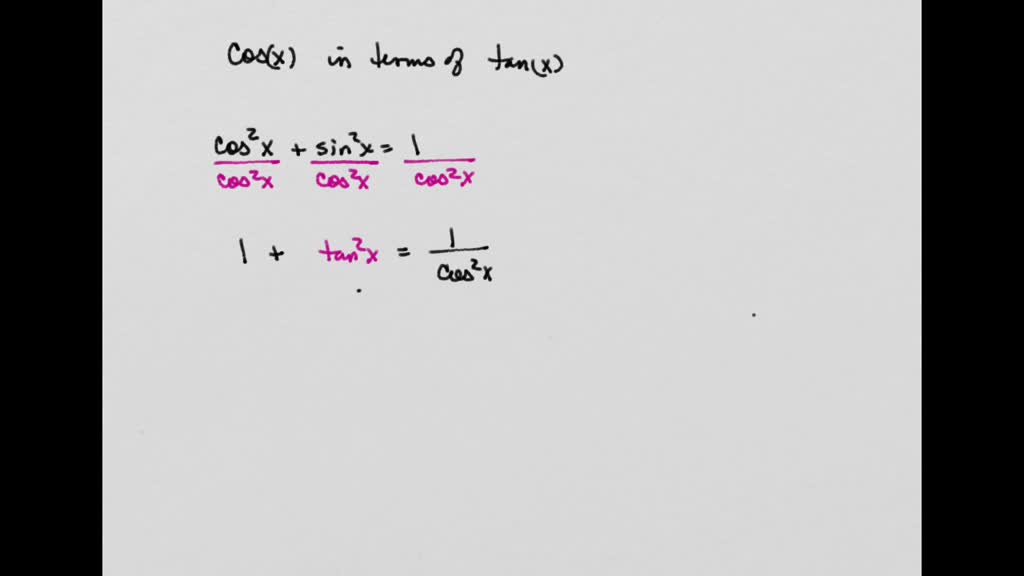 cos(x) in terms of tan(x)
cos²x + sin²x = 1
cos²x cos²x cos²x
1 + tan²x = 1
cos²x